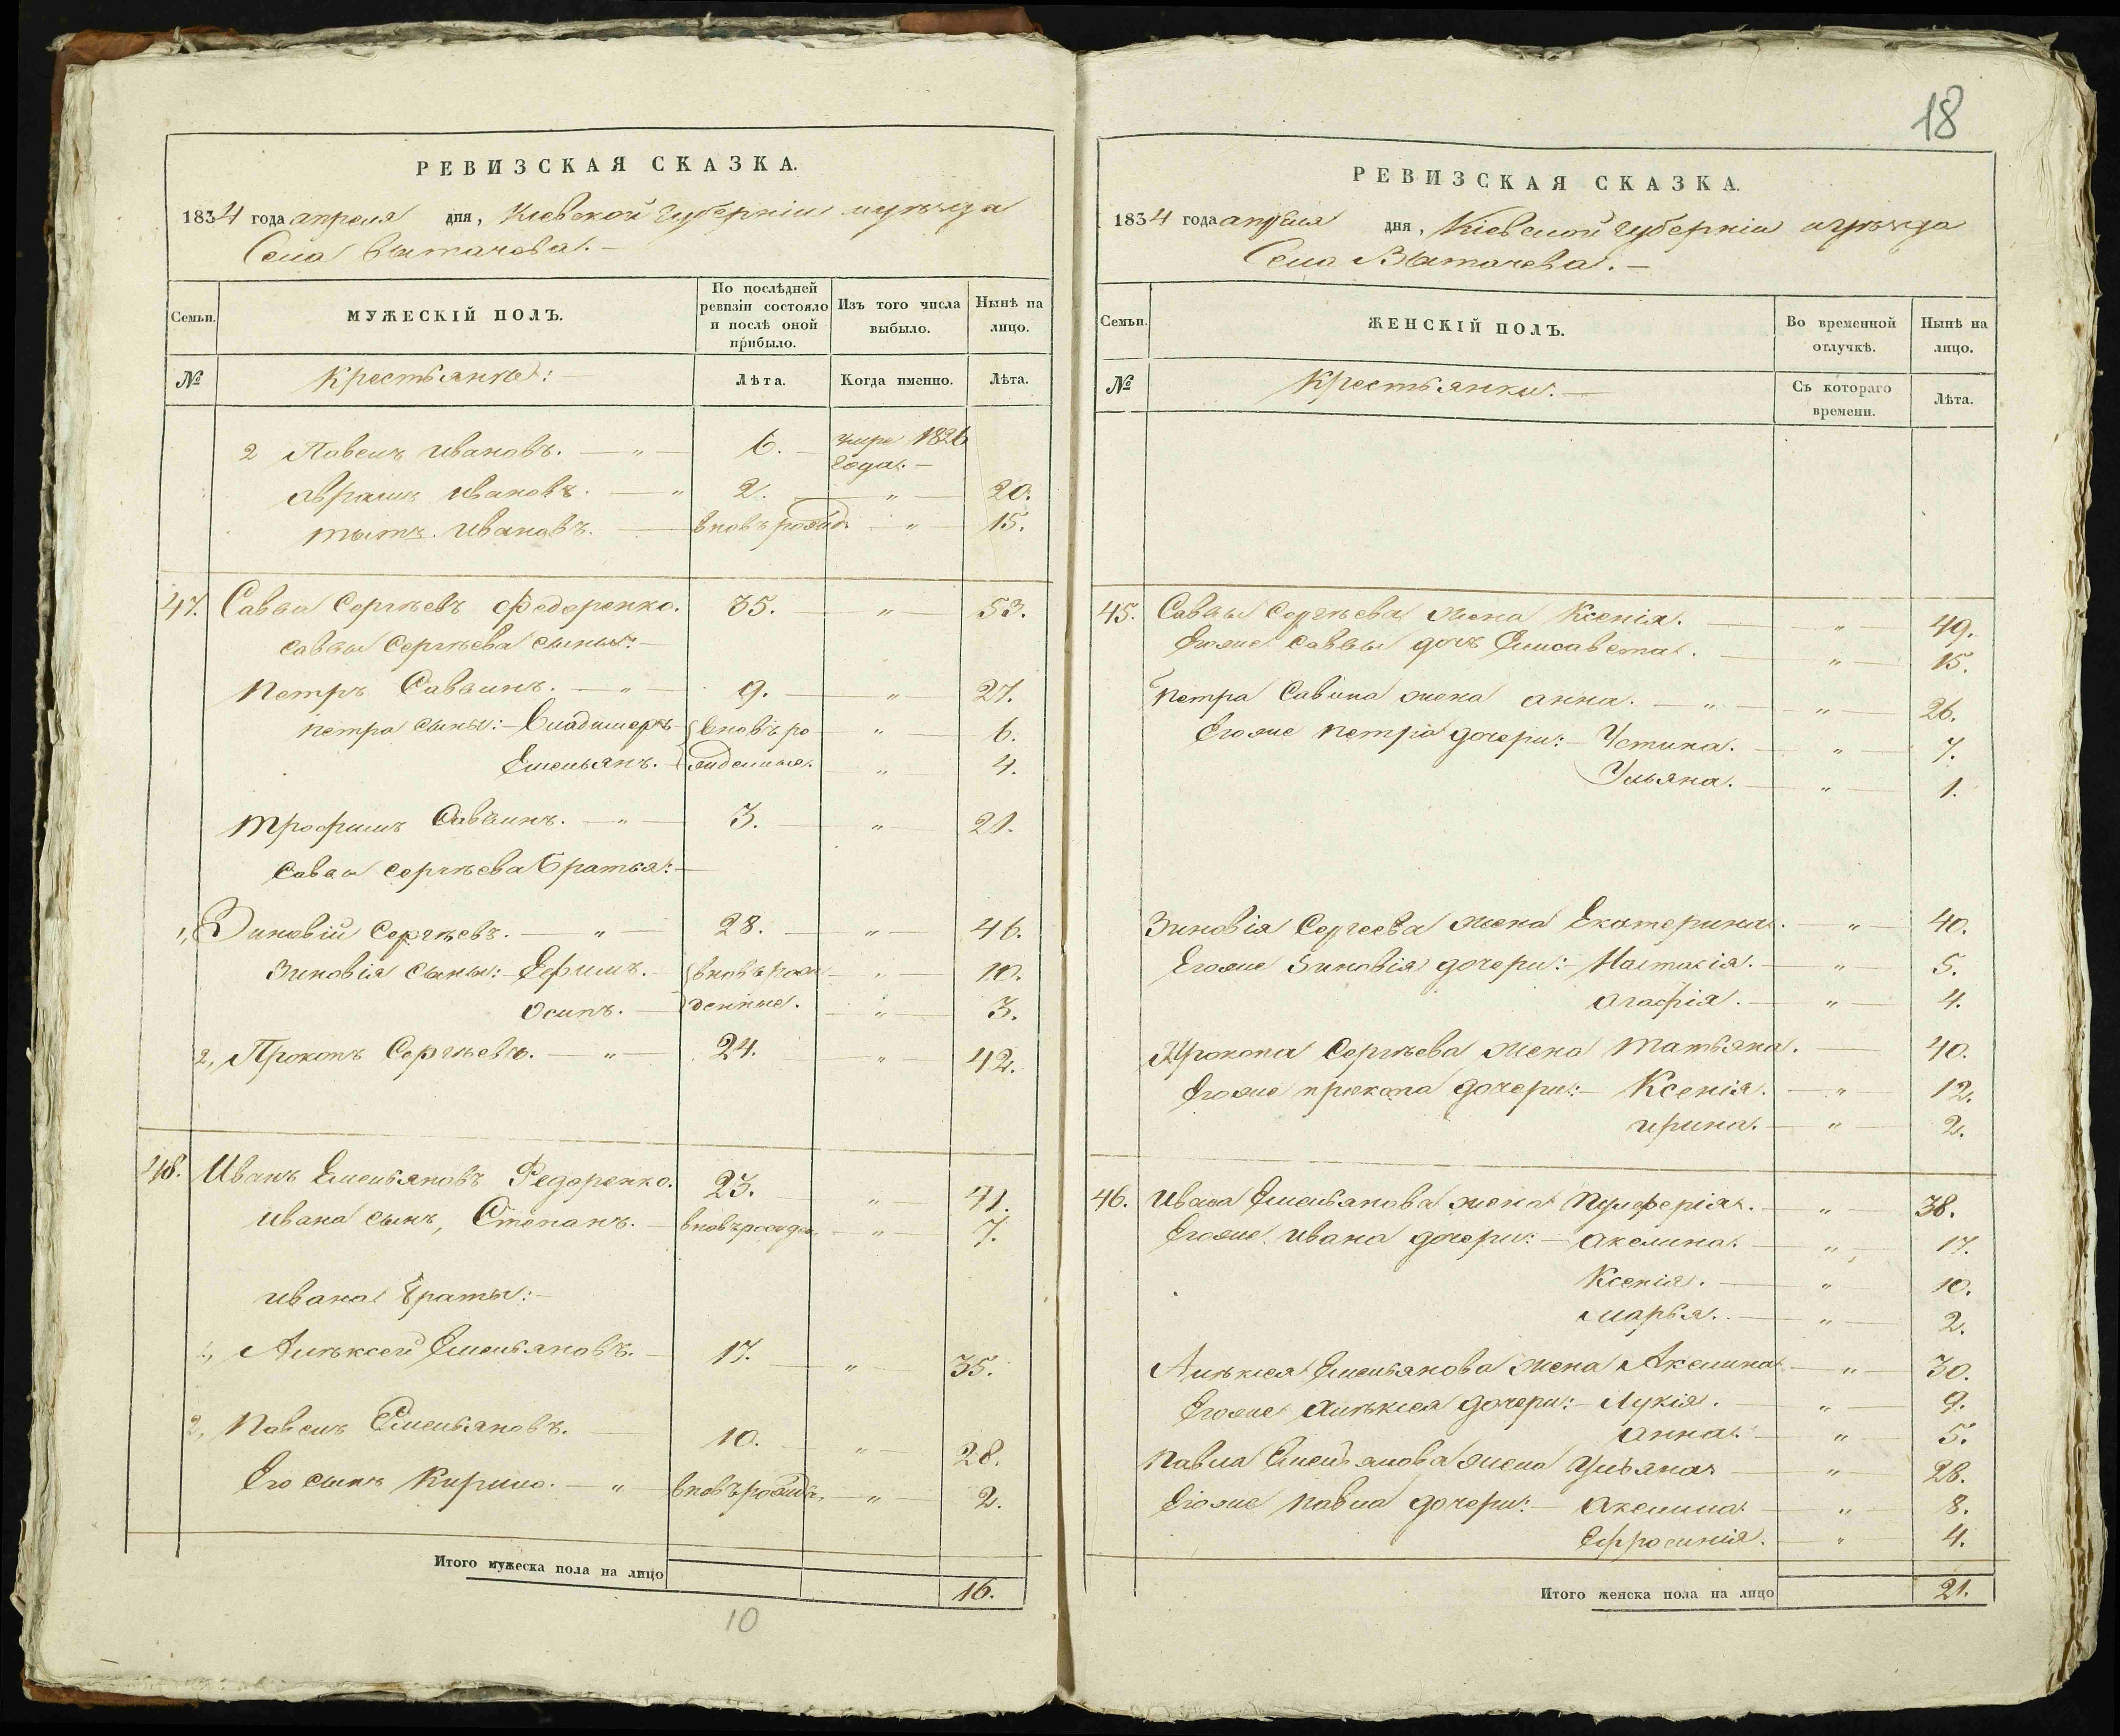 РЕВИЗСКАЯ СКАЗКА.
1834 года апреля дня, Кіевской Губерніи и уѣзда
Села Вытачева. —
Семьи. МУЖЕСКІЙ ПОЛЪ. По послѣдней ревизіи состояло и послѣ оной прибыло. Изъ того числа выбыло. Нынѣ на лицо.
№ Крестьяне: — Лѣта. Когда именно. Лѣта.
2 Павелъ Ивановъ. — „ — 6. — умре 1826 года. —
Аврамъ Ивановъ. — „ 2. — „ — 20.
Титъ Ивановъ. — вновь рожд. — „ — 15.
47. Савва Сергѣевъ Федоренко. 35. — „ — 53.
Саввы Сергѣева сыны: —
Петръ Саввинъ. — „ — 9. — „ — 27.
Петра сыны: — Владимеръ {вновь ро — „ — 6.
Емельянъ. {жденные. — „ — 4.
Трофимъ Саввинъ. — „ — 3. — „ — 21.
Саввы Сергѣева братья: —
1, Зиновій Сергѣевъ. — „ — 28. — „ — 46.
Зиновія сыны: Ефимъ. {вновь рож — „ — 10.
Осипъ. — {денные. — „ — 3.
2, Прокопъ Сергѣевъ. — „ — 24. „ 42.
48. Иванъ Емельяновъ Федоренко. 23. — „ — 41.
Ивана сынъ, Степанъ. — вновь рожден. — „ — 7.
Ивана браты: —
1, Алѣксей Емельяновъ. — 17. — „ — 35.
2, Павелъ Емельяновъ. — 10. — „ — 28.
Его сынъ Кирило. — „ — вновь рожд. — „ — 2.
Итого мужеска пола на лицо 16.
10
18
РЕВИЗСКАЯ СКАЗКА.
1834 года апреля дня, Кіевской Губерніи и уѣзда
Села Вытачева. —
Семьи. ЖЕНСКІЙ ПОЛЪ. Во временной отлучкѣ. Нынѣ на лицо.
№ Крестьянки. — Съ котораго времени. Лѣта.
45. Саввы Сергѣева жена Ксенія. — „ — 49.
Егоже Саввы дочь Елисавета. — „ — 15.
Петра Савина жена Анна. — „ — „ — 26.
Егоже Петра дочери: — Устина. — „ — 7.
Ульяна. — „ — 1.
Зиновія Сергеева жена Екатерина. — „ — 40.
Егоже Зиновія дочери: — Настасія. — „ — 5.
Агафія. — „ — 4.
Прокопа Сергѣева жена Татьяна. — 40.
Егоже Прокопа дочери: — Ксенія. — „ — 12.
Ирина. — „ — 2.
46. Ивана Емельянова жена Пулферія. — „ — 38.
Егоже Ивана дочери: — Акелина. — „ — 17.
Ксенія. — „ — 10.
Марья. — „ — 2.
Алѣксея Емельянова жена Акелина — „ — 30.
Егоже Алѣксея дочери: — Лукія. — „ — 9.
Анна. — „ — 5.
Павла Емельянова жена Ульяна — „ — 28.
Егоже Павла дочери: — Акелина — „ — 8.
Ефросинія. — „ — 4.
Итого женска пола на лицо 21.